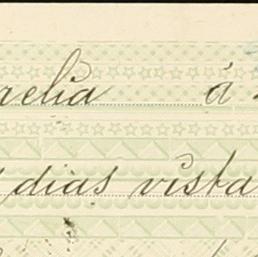 relia á
dias vista